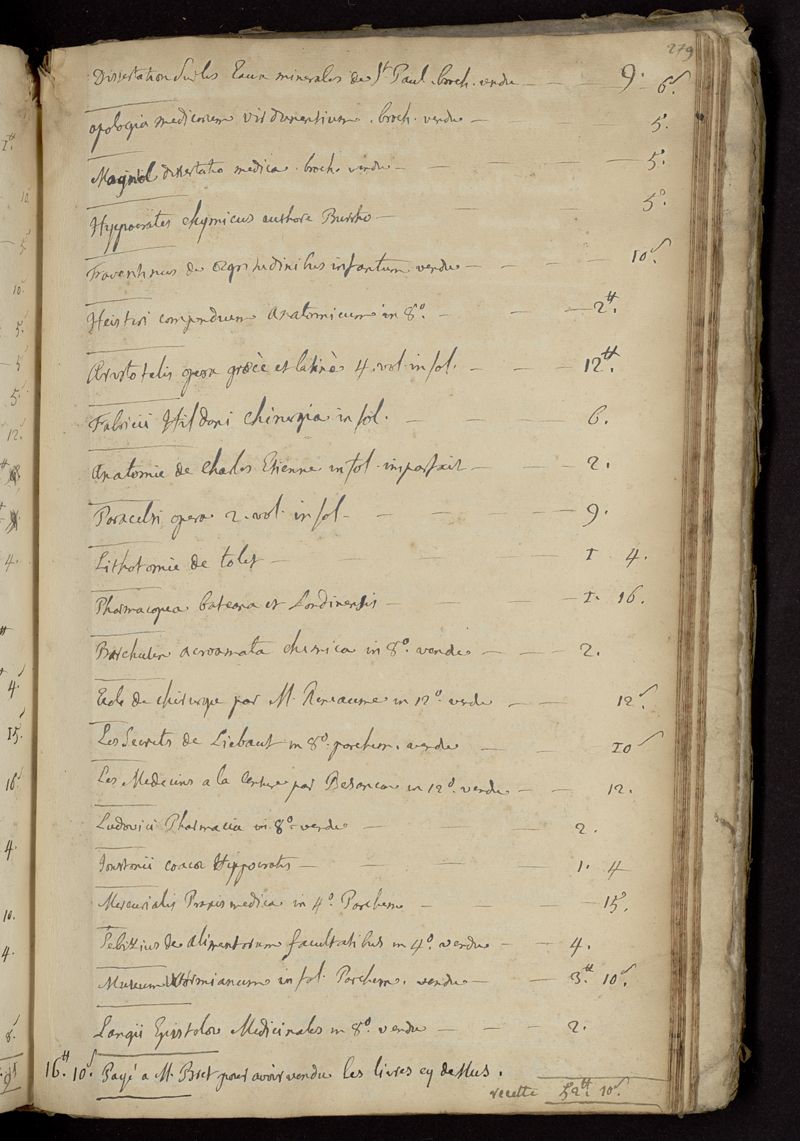 279
Dissertation sur les Eaux minerales de St Paul. broch. vendu — 9. 6s.
apologia medicorum virdunensium. broch. vendu — 5.
Magnol dissertatio medica. broch. vendu — 5s.
Hyppocrates chymicus authore Burrho — 5s.
de ægritudinibus infantum vendu — 10s.
Heisteri compendium anatomicum in 8o. — 2tt.
Aristotelis opera græcè et latinè 4. vol. in fol. — 12tt.
Fabricii Hildani chirurgia in fol. — 6.
Anatomie de Charles Etienne in fol. imparfait — 2.
Paracelsi opera 2. vol. in fol. — 9.
Lithotomie de tolet — 1 4.
Pharmacopea bateana et Londinensis — 1. 16.
Barchusen acroamata chimica in 8o. vendu — 2.
Ecole de chirurgie par M. Reneaume in 12o. vendu — 12s.
Les Secrets de Liebaut in 8o. parchem. vendu — 10s
Les Medecins a la Censure par Besançon in 12o. vendu — 12.
Ludovici Pharmacia in 8o. vendu — 2.
Jonstonii coacæ Hippocratis — 1. 4
Mercurialis Praxis medica in 4o. Parchem — 15s.
de alimentorum facultatibus in 4o. vendu — 4.
Museum Wormianum in fol. Parchem. vendu — 3.tt 10s.
Langii Epistolæ Medicinales in 8o. vendu — 2.
16.tt 10s. Payé a M. Bret pour avoir vendu les livres cy dessus.
recette 52tt. 10s.